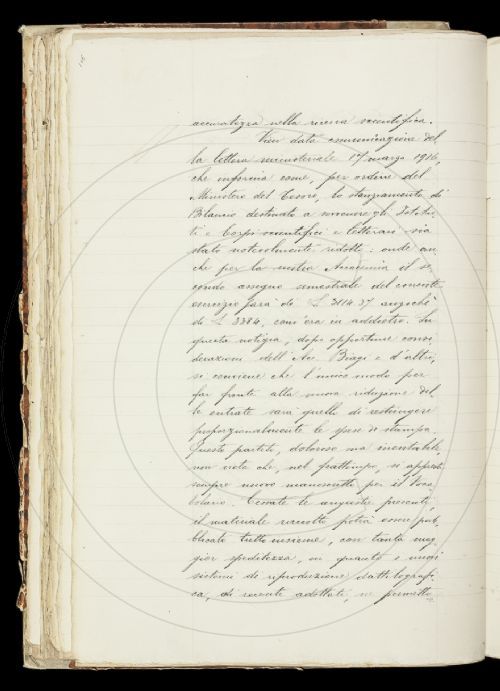 accuratezza nella ricerca scientifica.
Vien data comunicazione del
la lettera ministeriale 17 marzo 1916,
che informa come, per ordine del
Ministero del Tesoro, lo stanziamento di
Bilancio destinato a sovvenire gli Istitu
ti e Corpi scientifici e letterari sia
stato notevolmente ridotto: onde an
che per la nostra Accademia il se
condo assegno semestrale del corrente
esercizio sarà di £ 3114.37 anzichè
di £ 3384, com'era in addietro. In
questa notizia, dopo opportune consi
derazioni dell'Acc. Biagi e d'altri,
si conviene che l'unico modo per
far fronte alla nuova riduzione del
le entrate sarà quello di restringere
proporzionalmente le spese di stampa.
Questo partito, doloroso ma inevitabile,
non vieta che, nel frattempo, si appresti
sempre nuovo manoscritto per il Voca
bolario. Cessate le angustie presenti,
il materiale raccolto potrà essere pub
blicato tutto insieme, con tanta mag
gior speditezza, in quanto i nuovi
sistemi di riproduzione dattilografi
ca, di recente adottati, ne permetto